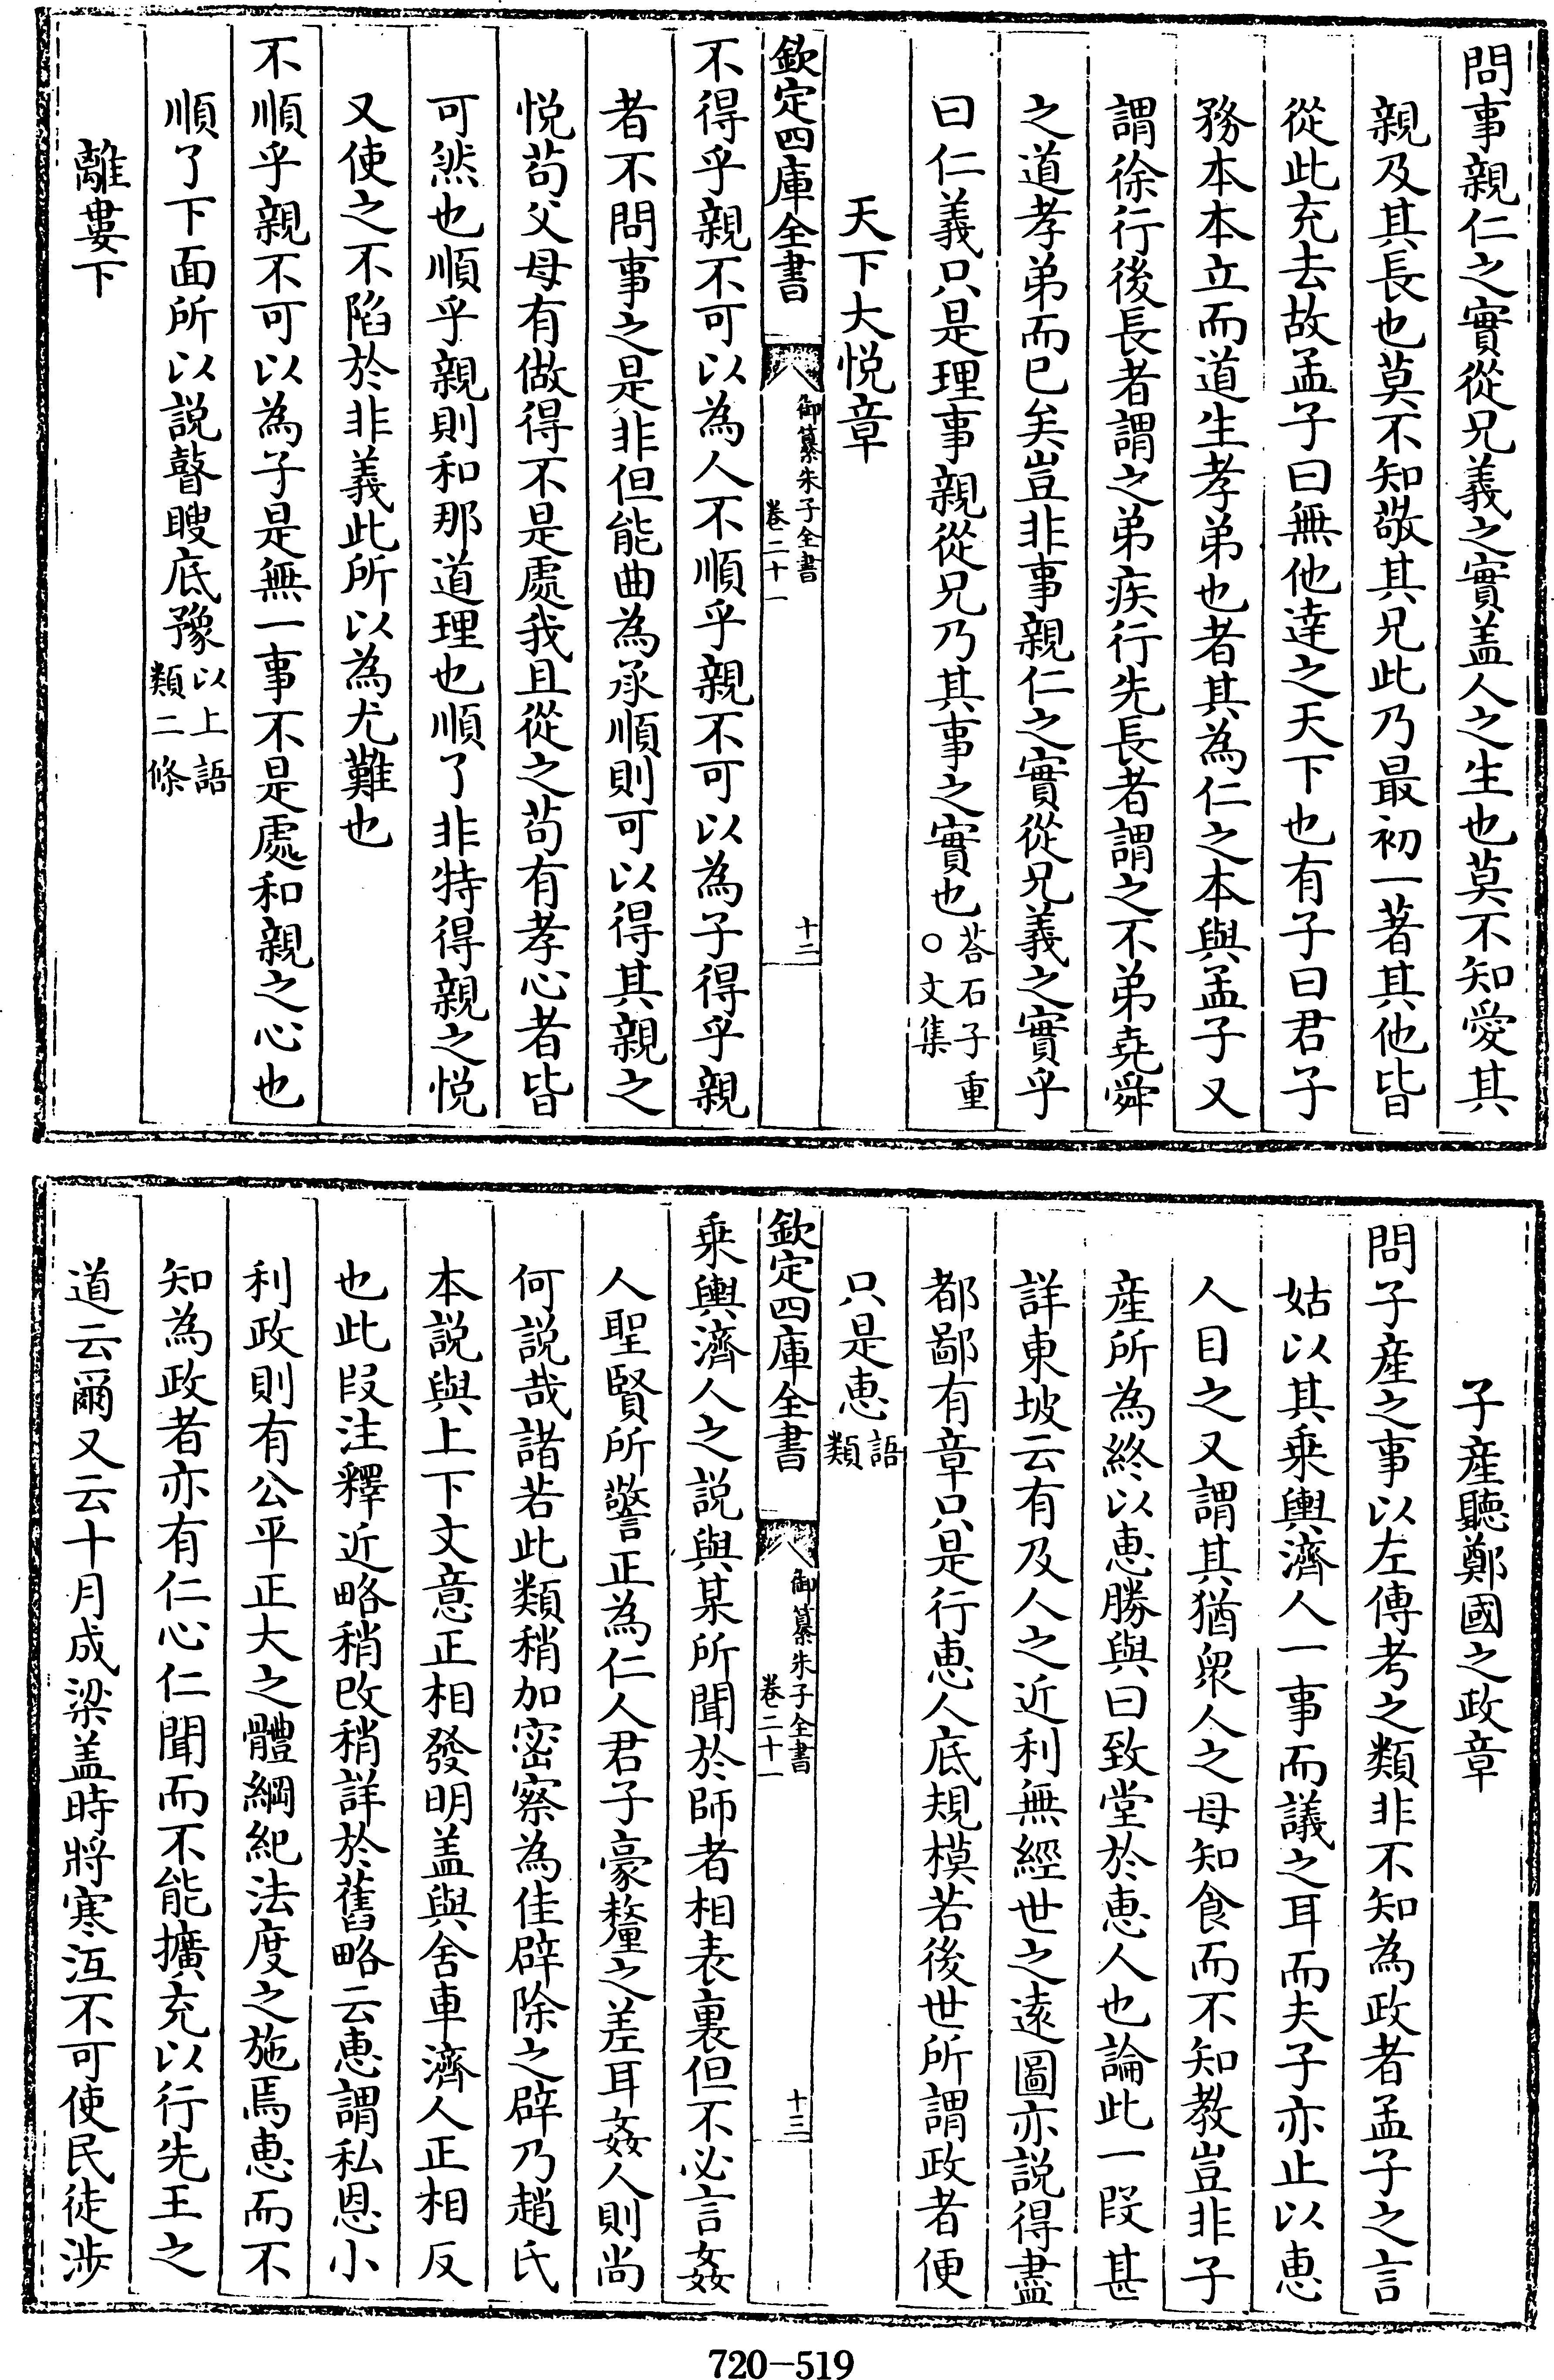 問事親仁之實從兄義之實盖人之生也莫不知愛其
親及其長也莫不知敬其兄此乃最初一著其他皆
從此充去故孟子曰無他達之天下也有子曰君子
務本本立而道生孝弟也者其為仁之本與孟子又
謂徐行後長者謂之弟疾行先長者謂之不弟堯舜
之道孝弟而已矣豈非事親仁之實從兄義之實乎
曰仁義只是理事親從兄乃其事之實也荅石子重○文集
天下大悦章
欽定四庫全書
御纂朱子全書
卷二十一
十二
不得乎親不可以為人不順乎親不可以為子得乎親
者不問事之是非但能曲為承順則可以得其親之
悦苟父母有做得不是處我且從之苟有孝心者皆
可然也順乎親則和那道理也順了非特得親之悦
又使之不陷於非義此所以為尤難也
不順乎親不可以為子是無一事不是處和親之心也
順了下面所以説瞽瞍底豫以上語類二條
離婁下
子産聽鄭國之政章
問子産之事以左傳考之類非不知為政者孟子之言
姑以其乗輿濟人一事而議之耳而夫子亦止以恵
人目之又謂其猶衆人之母知食而不知教豈非子
産所為終以恵勝與曰致堂於恵人也論此一段甚
詳東坡云有及人之近利無經世之逺圖亦説得盡
都鄙有章只是行恵人底規模若後世所謂政者便
只是恵語類
欽定四庫全書
御纂朱子全書
卷二十一
十三
乗輿濟人之説與某所聞於師者相表裏但不必言姦
人聖賢所警正為仁人君子豪釐之差耳姦人則尚
何説哉諸若此類稍加密察為佳辟除之辟乃趙氏
本説與上下文意正相發明盖與舍車濟人正相反
也此段注釋近略稍改稍詳於舊略云恵謂私恩小
利政則有公平正大之體綱紀法度之施焉恵而不
知為政者亦有仁心仁聞而不能擴充以行先王之
道云爾又云十月成梁盖時將寒沍不可使民徒渉
720-519